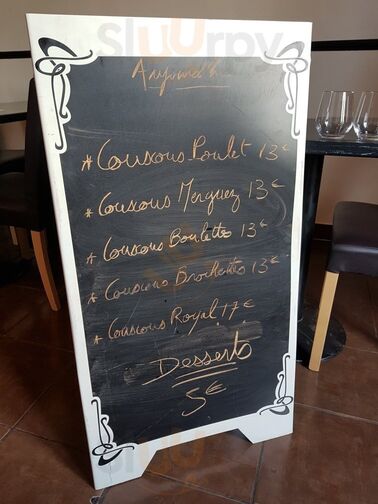 Slurpy
Aujourd'h
* Couscous Poulet 13€
* Couscous Merguez 13€
* Couscous Boulettes 13€
* Couscous Brochettes 13€
* Couscous Royal 17€
Desserts
5€